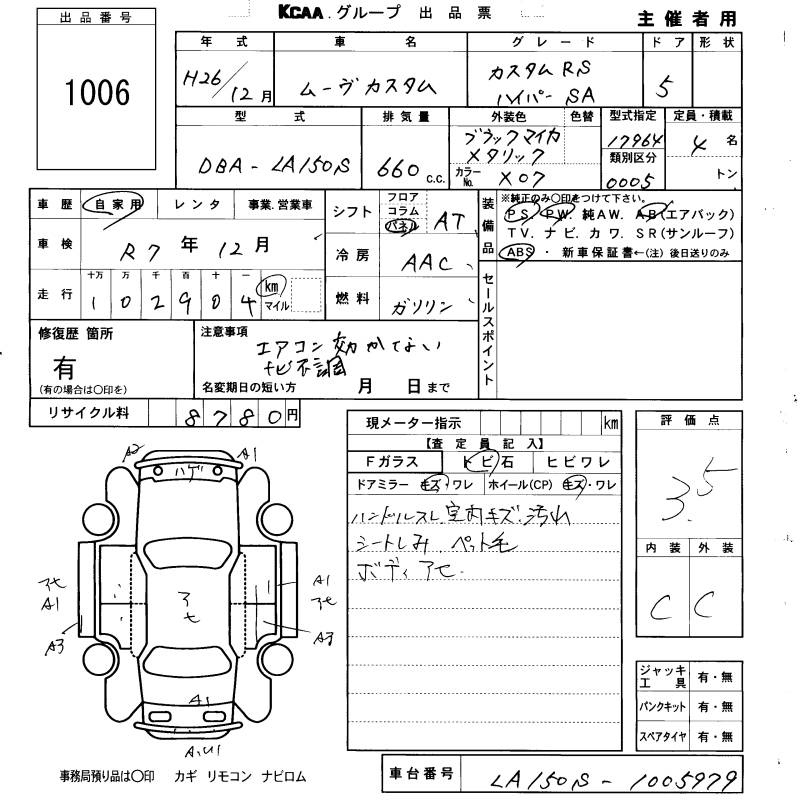 KCAA グループ 出品票
主催者用
出品番号
1006
年式 車名 グレード ドア 形状
H26/12月 ムーヴカスタム カスタムRS ハイパーSA 5
型式 排気量 外装色 色替 型式指定 定員・積載
DBA-LA150S 660 c.c. ブラックマイカメタリック 17964 4 名
カラーNo. X07 類別区分 0005 トン
車歴 自家用 レンタ 事業.営業車
車検 R7年12月
走行 十万 万 千 百 十 一
1 0 2 9 0 4 km マイル
シフト フロア コラム パネル AT
冷房 AAC
燃料 ガソリン
装備品 ※純正のみ〇印をつけて下さい。
PS. PW. 純AW. AB(エアバック)
TV. ナビ. カワ. SR(サンルーフ)
ABS ・ 新車保証書←(注) 後日送りのみ
セールスポイント
修復歴 箇所
有
(有の場合は〇印を)
注意事項
エアコン効かない
ナビ不調
名変期日の短い方 月 日まで
リサイクル料 8780円
現メーター指示 km
【査定員記入】
Fガラス トビ石 ヒビワレ
ドアミラー キズ・ワレ ホイール(CP) キズ・ワレ
ハンドルスレ 室内キズ.汚れ
シートしみ ペット毛
ボディアセ
評価点
3.5
内装 外装
C C
A2 A1
ハゲ
アセ A1 A3
アセ
A1 アセ A3
A1
A.U1
ジャッキ工具 有・無
パンクキット 有・無
スペアタイヤ 有・無
事務局預り品は〇印 カギ リモコン ナビロム
車台番号 LA150S-1005979